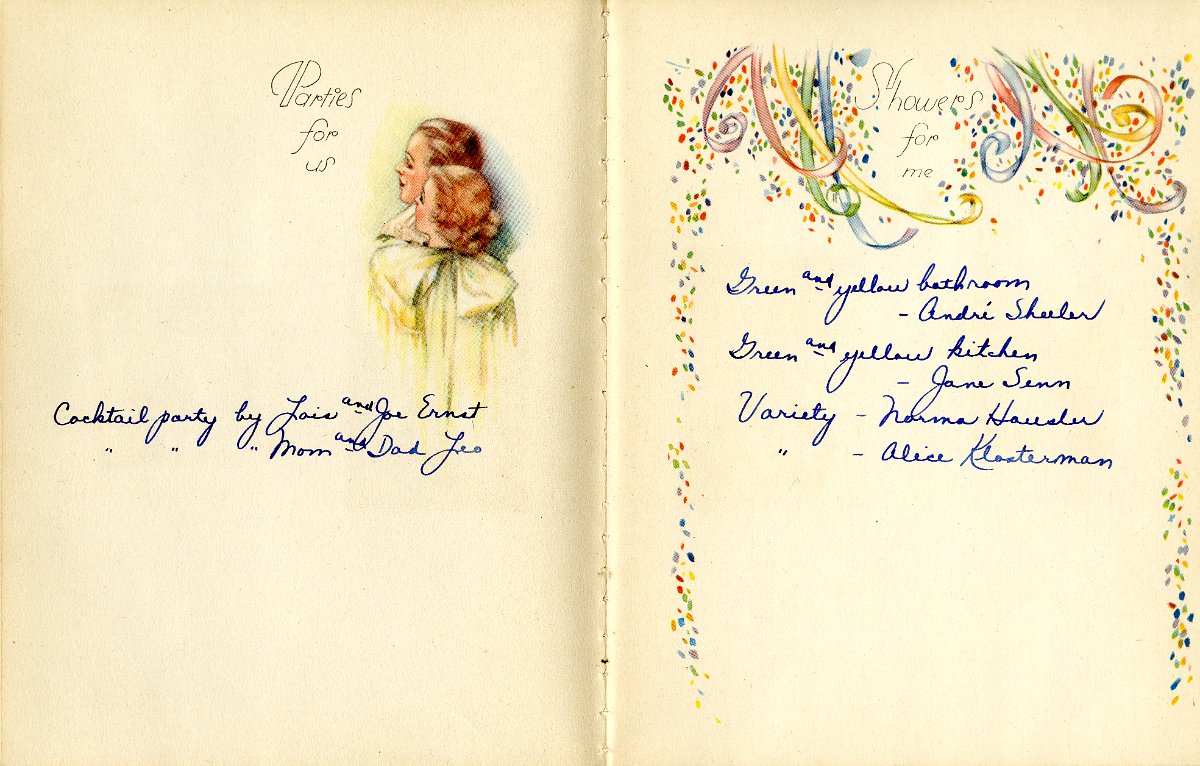 Parties
for
us
Cocktail party by Lois and Joe Ernst
" " " Mom and Dad Leo
Showers
for
me
Green and yellow bathroom
- André Sheeler
Green and yellow kitchen
- Jane Senn
Variety - Norma Hausler
" - Alice Klosterman